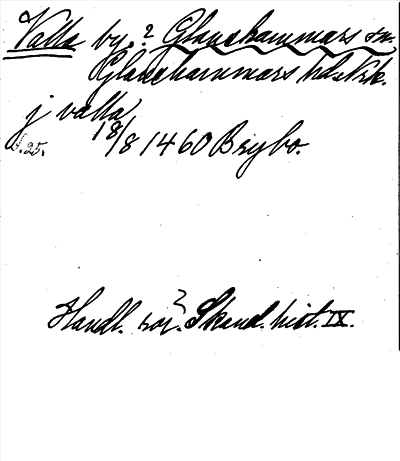 Valla by. ? Glanshammars sn.
Glanshammars hd
j valla
s. 25. 18/8 1460 Brybo.
Handl. rör. Skand. hist. IX.